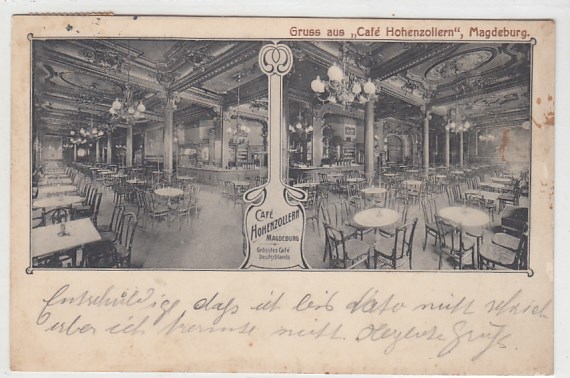 Gruss aus „Café Hohenzollern“, Magdeburg.
CAFÉ
HOHENZOLLERN
MAGDEBURG
Grösstes Café
Deutschlands
Entschuldige daß ich bis dato nicht schrieb
aber ich konnte nicht Herzliche Grüße